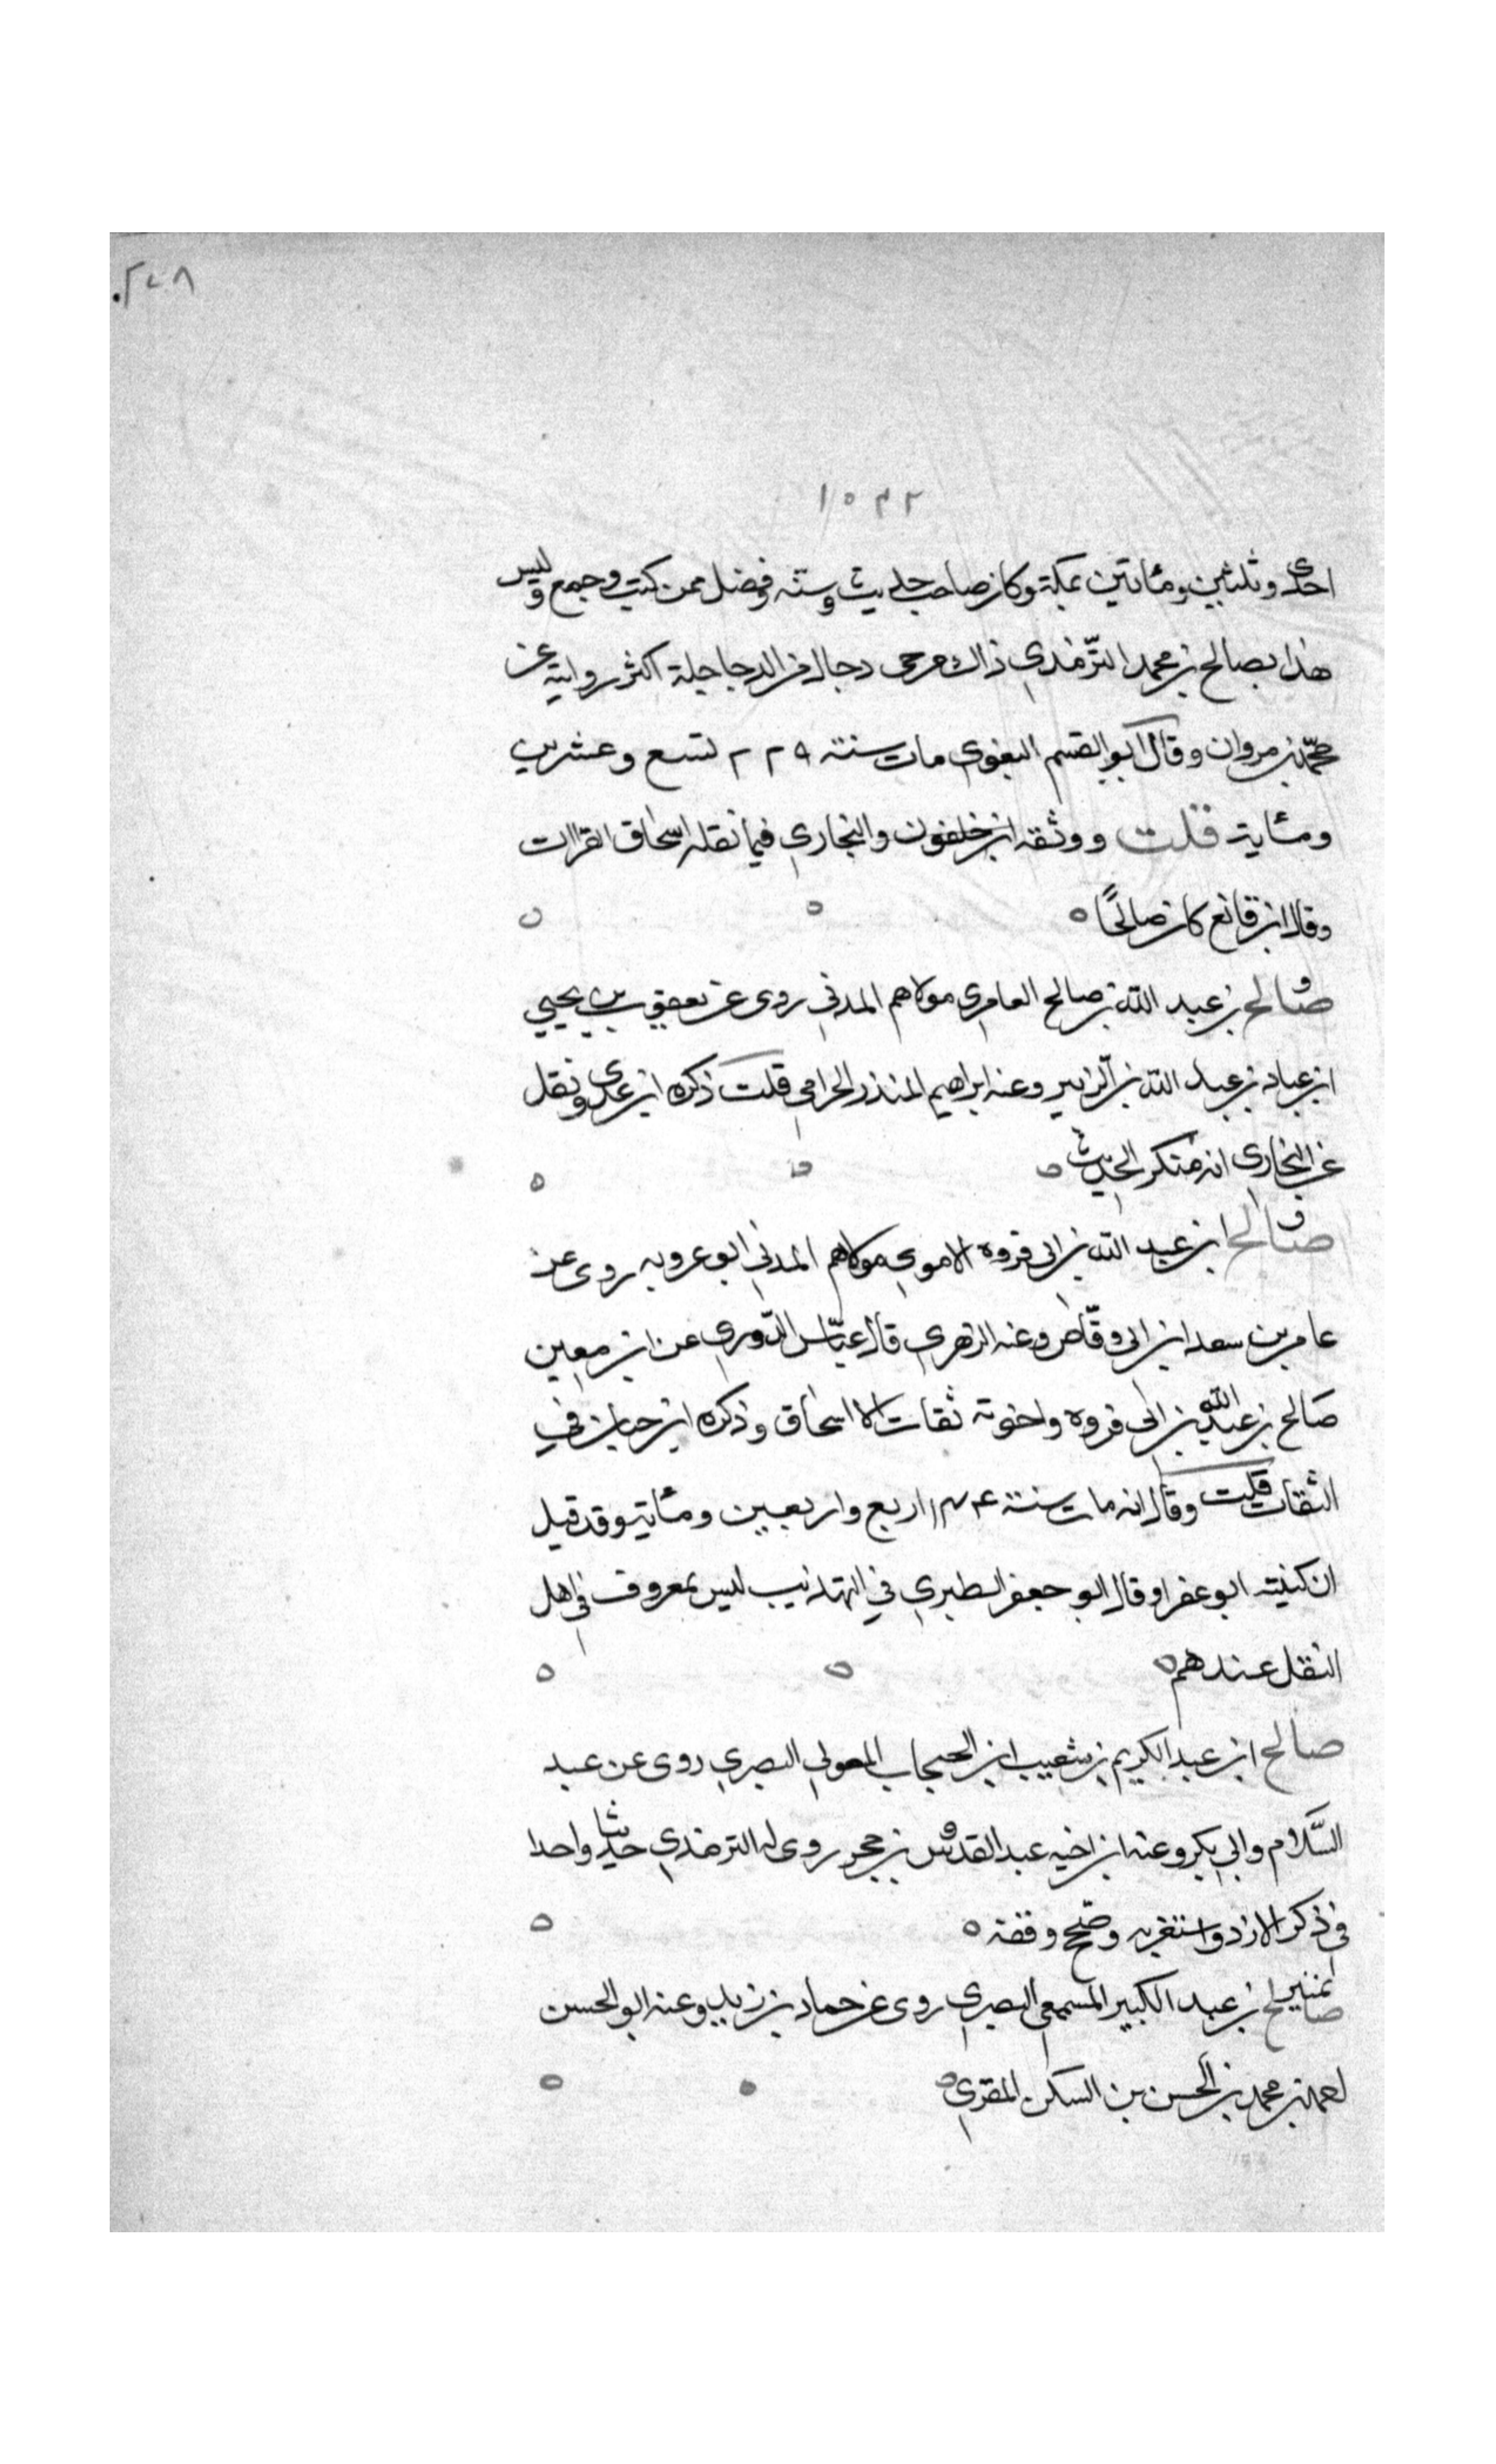 ٢٤٨
١٥٣٢
احدى وثلثين ومأتين بمكة وكان صاحب حديث وسنه وفضل ممن كتب وجمع وليس
هذا بصالح بن محمد الترمذي ذاك مرجى دجال من الدجاجلة اكثر روايته عن
محمد بن مروان وقال ابو القسم البغوي مات سنة ٢٢٩ تسع وعشرين
ومئاية قلت ووثقه ابن خلفون والبخاري فيما نقله اسحاق القراات
وقال ابن قانع كان صالحًا
صالح بن عبد الله بن صالح العامري مولاهم المدني روى عن يعقوب بن يحيى
ابن عباد بن عبد الله بن الزبير وعنه ابراهيم المنذر الحرامي قلت ذكره ابن عدي ونقل
عن البخاري انه منكر الحديث
صالح ابن عبد الله بن ابي فروه الاموي مولاهم المدني ابو عروبه روى عن
عامر بن سعد ابن ابي وقّاص وعنه الزهري قال عبّاس الدّوري عن ابن معين
صالح بن عبد الله بن ابي فروه واخوته ثقات الا اسحاق وذكره ابن حبان في
الثقات قلت وقال انه مات سنة ١٣٤ اربع واربعين ومئاية وقد قيل
ان كنيته ابو عفرا وقال ابو جعفر الطبري في التهذيب ليس بمعروف في اهل
النقل عندهم
صالح ابن عبد الكريم بن شعيب ابن الحبحاب المعولي البصري روى عن عبد
السَّلام وابي بكر وعنه ابن اخيه عبد القدوس بن محمد روى له الترمذي حديثا واحدا
في ذكر الازد واستغربه وصحّح وقفه
تمييز
صالح بن عبد الكبير المسمعي البصري روى عن حماد بن زيد وعنه ابو الحسن
احمد بن محمد بن الحسن بن السكن المقري